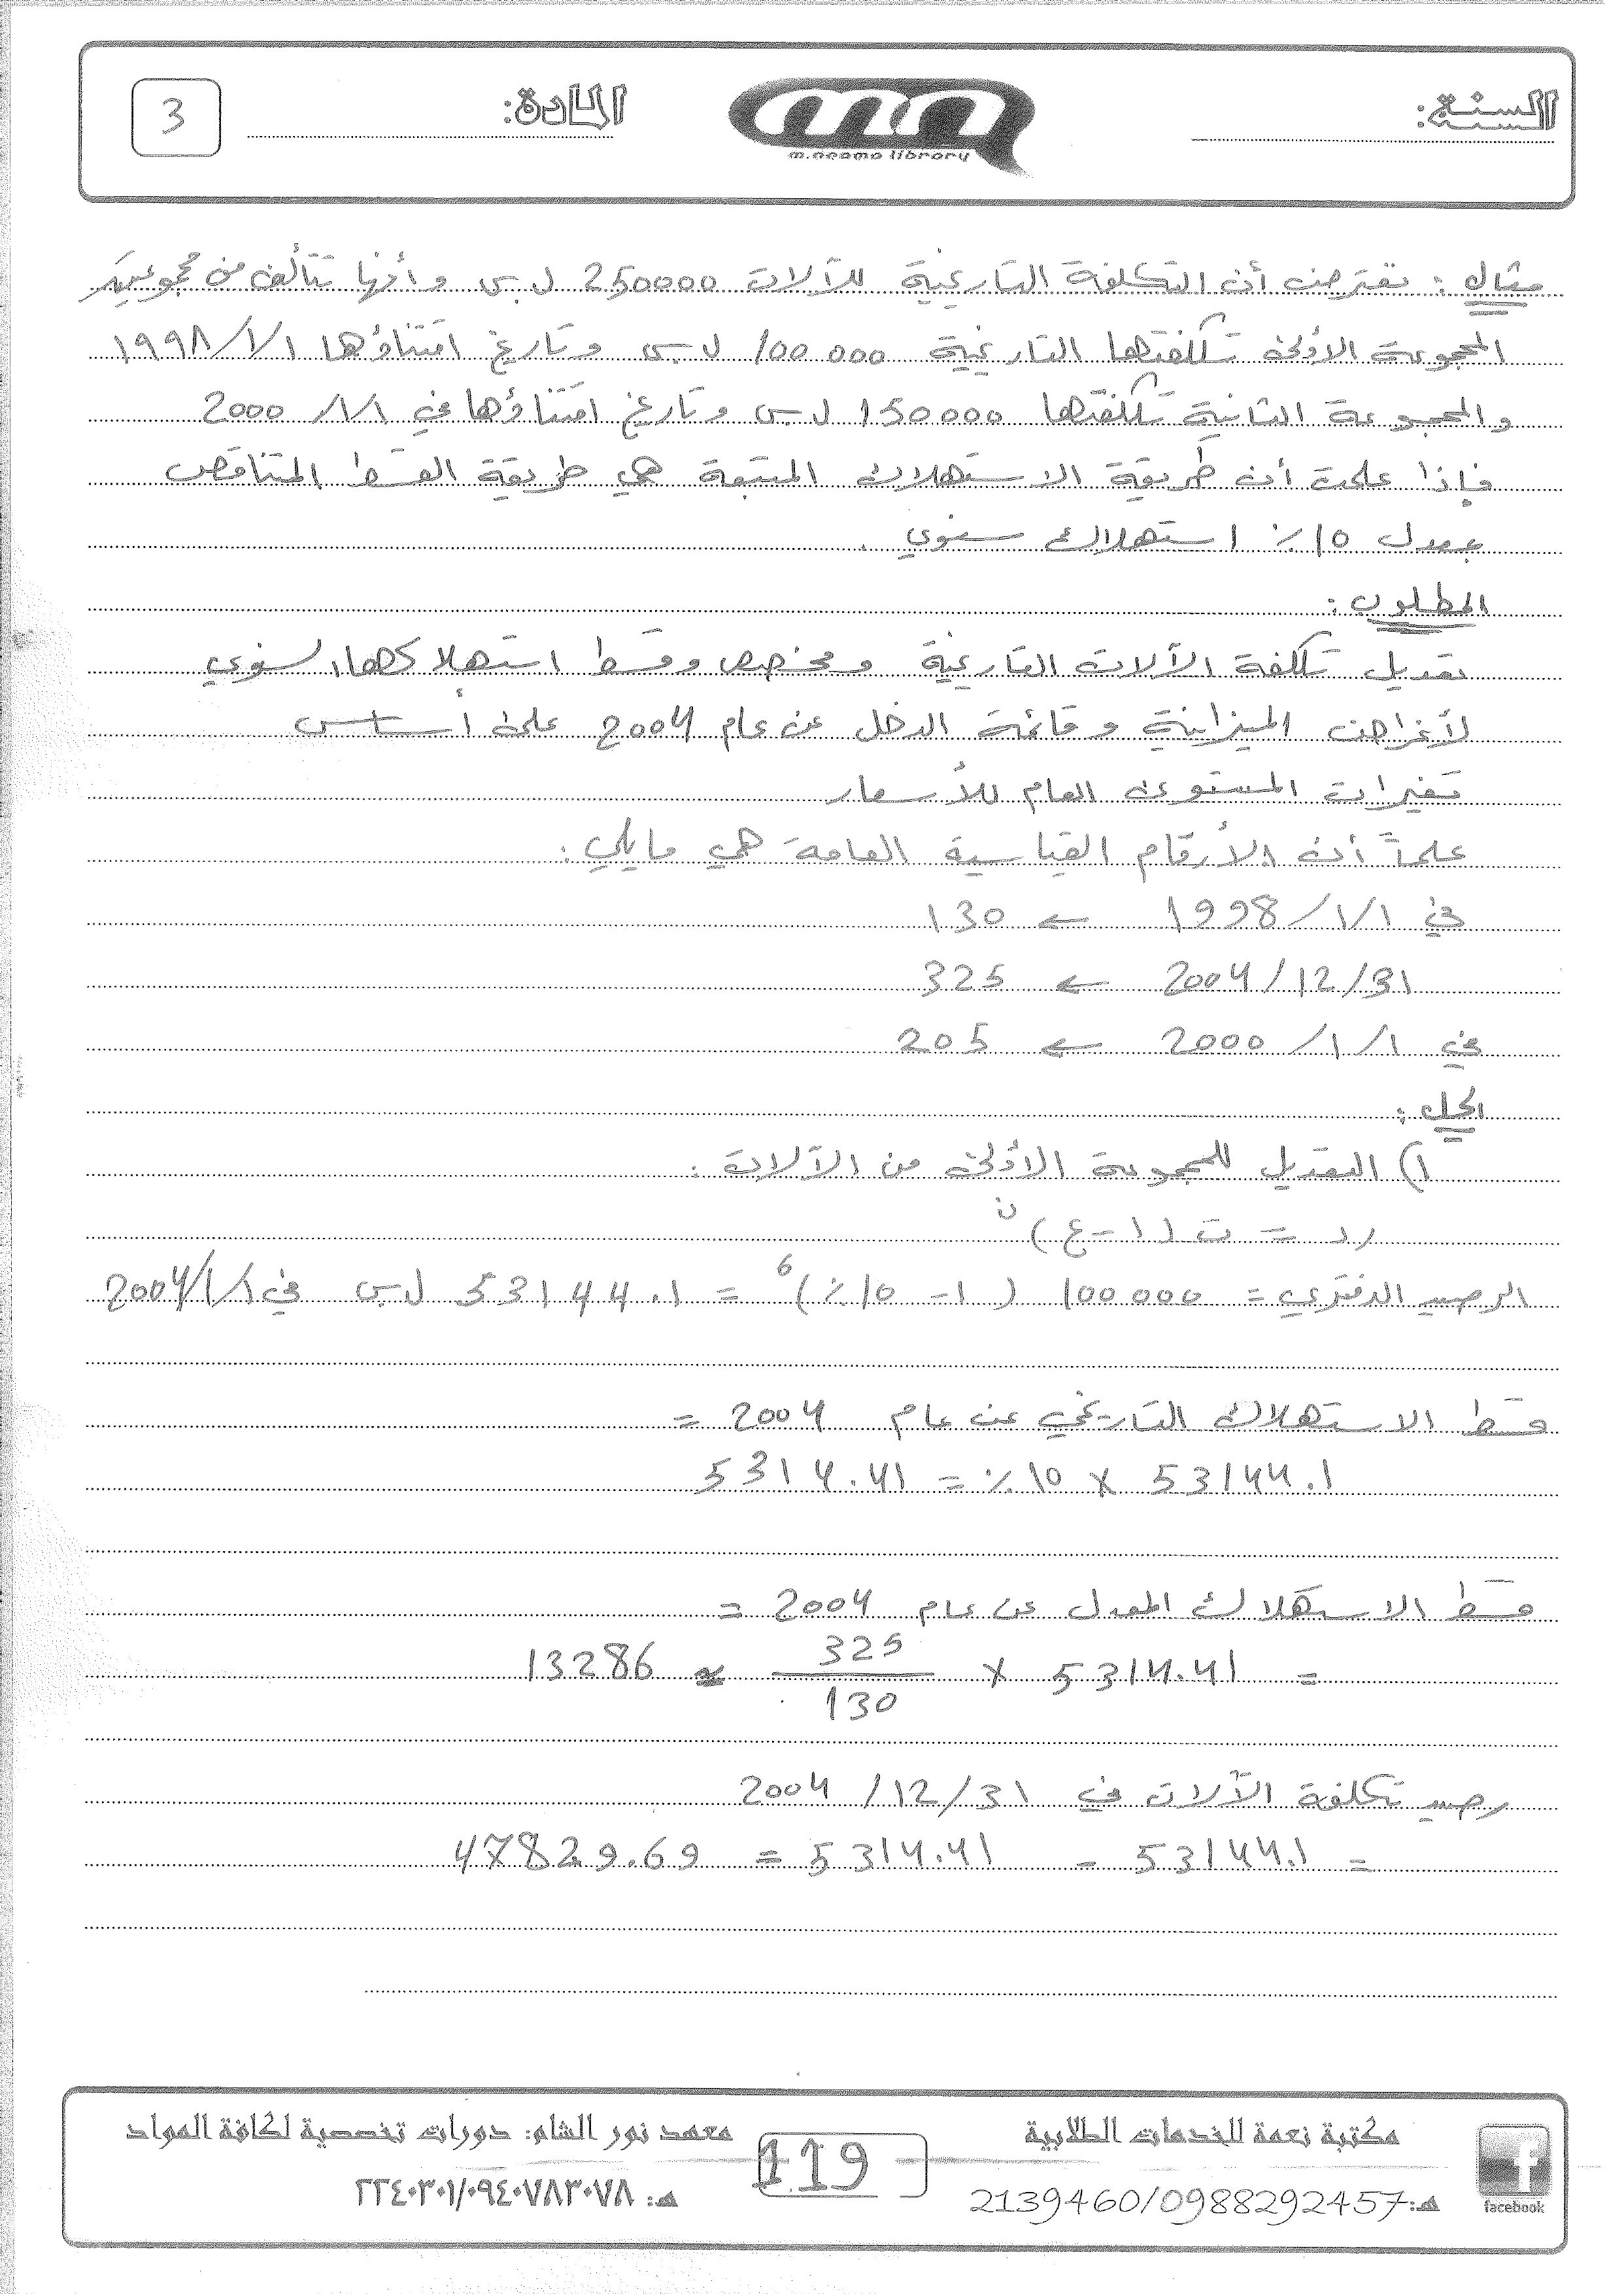 السنة:
المادة:
3
m.neama library
مثال : نفترض أن التكلفة التاريخية للآلات 250000 ل.س وأنها تتألف من مجموعتين
المجموعة الأولى تكلفتها التاريخية 100 000 ل.س وتاريخ اقتناؤها ١/١/١٩٩٨
والمجموعة الثانية تكلفتها 150000 ل.س وتاريخ اقتناؤها في 2000/١/١
فإذا علمت أن طريقة الاستهلاك المتبعة هي طريقة القسط المتناقص
بمعدل 10٪ استهلاك سنوي .
المطلوب :
تعديل تكلفة الآلات التاريخية ومخصص وقسط استهلاكها السنوي
لأغراض الميزانية وقائمة الدخل عن عام 2004 على أساس
تغيرات المستوى العام للأسعار
علماً أن الأرقام القياسية العامة هي مايلي :
في 1998/١/١ ← 130
2004/12/31 ← 325
في 2000/١/١ ← 205
الحل :
١) التعديل للمجموعة الأولى من الآلات :
رد = ت (١-ع)ن
الرصيد الدفتري = 100000 (١- 10٪)6 = 53144.1 ل.س في 2004/١/١
قسط الاستهلاك التاريخي عن عام 2004 =
53144.1 × 10٪ = 5314.41
قسط الاستهلاك المعدل عن عام 2004 =
= 5314.41 × 325/130 ≈ 13286
رصيد تكلفة الآلات في 2004/12/31
= 53144.1 - 5314.41 = 47829.69
مكتبة نعمة للخدمات الطلابية
هـ: 2139460/0988292457
facebook
119
معهد نور الشام: دورات تخصصية لكافة المواد
هـ: ٢٢٤٠٣٠١/٠٩٤٠٧٨٣٠٧٨